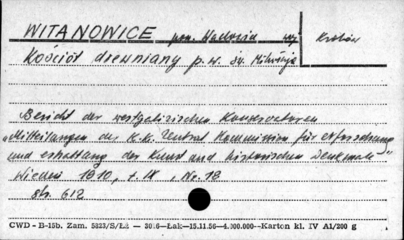 WITANOWICE pow. Wadowice woj. Kraków
Kościół drewniany p.w. św. Mikołaja
Bericht der westgalizischen Konservatoren
"Mitteilungen der K.K. Zentral Kommission für erforschung
und erhaltung der Kunst und historischen Denkmale"
Wiedeń 1910, t. IX, Nr. 18
str. 612
CWD - B-15b. Zam. 5823/S/Łż — 30:6—Łak—15.11.56—4.000.000—Karton kl. IV A1/200 g